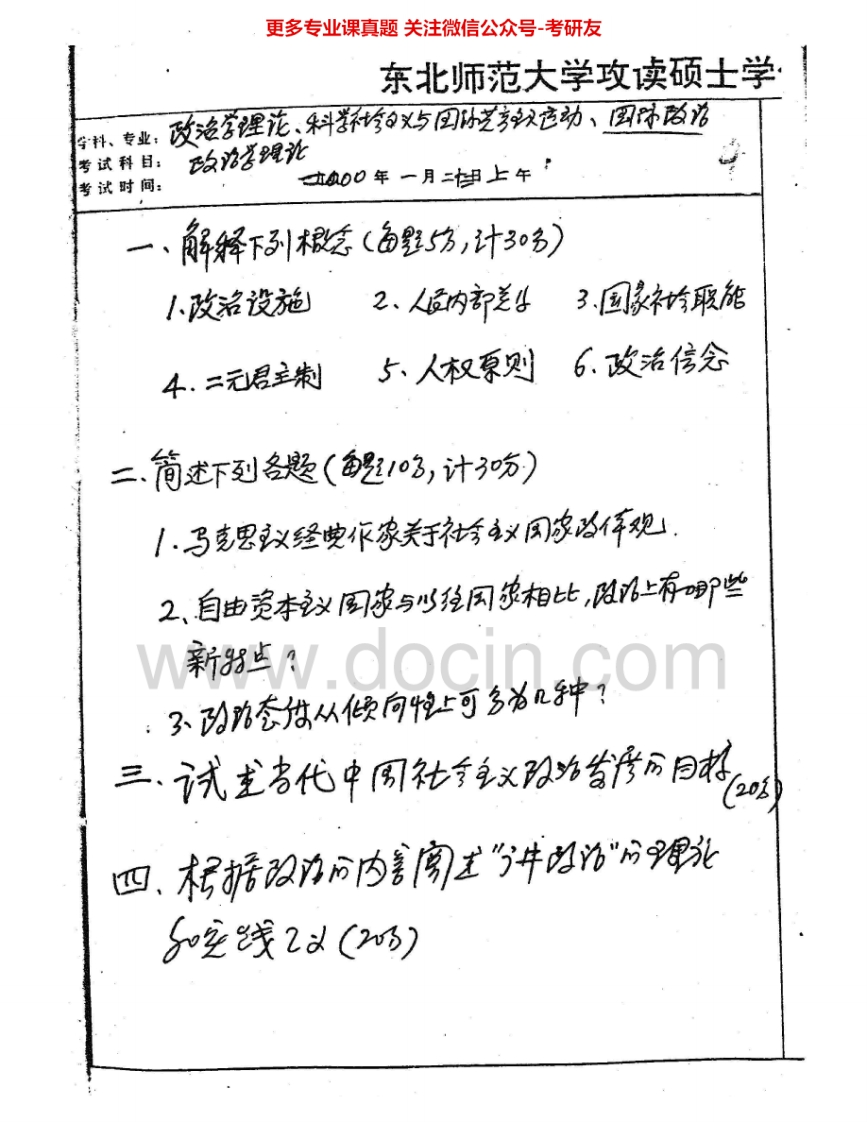 更多专业课真题 关注微信公众号-考研友
东北师范大学攻读硕士学
学科、专业：政治学理论、科学社会主义与国际共产主义运动、国际政治
考试科目：政治学理论
考试时间：2000年一月二十日上午
一、解释下列概念（每题5分，计30分）
1.政治设施 2、人民内部 3.国家社会职能
4.二元君主制 5、人权原则 6.政治信念
二、简述下列各题（每题10分，计30分）
1.马克思主义经典作家关于社会主义国家政体观.
2、自由资本主义国家与以往国家相比，政治上有哪些
新特点？
www.docin.com
3、政治态度从倾向性上可分为几种？
三、试述当代中国社会主义政治发展的目标（20分）
四、根据政治的内涵阐述“讲政治”的理论
和实践意义（20分）